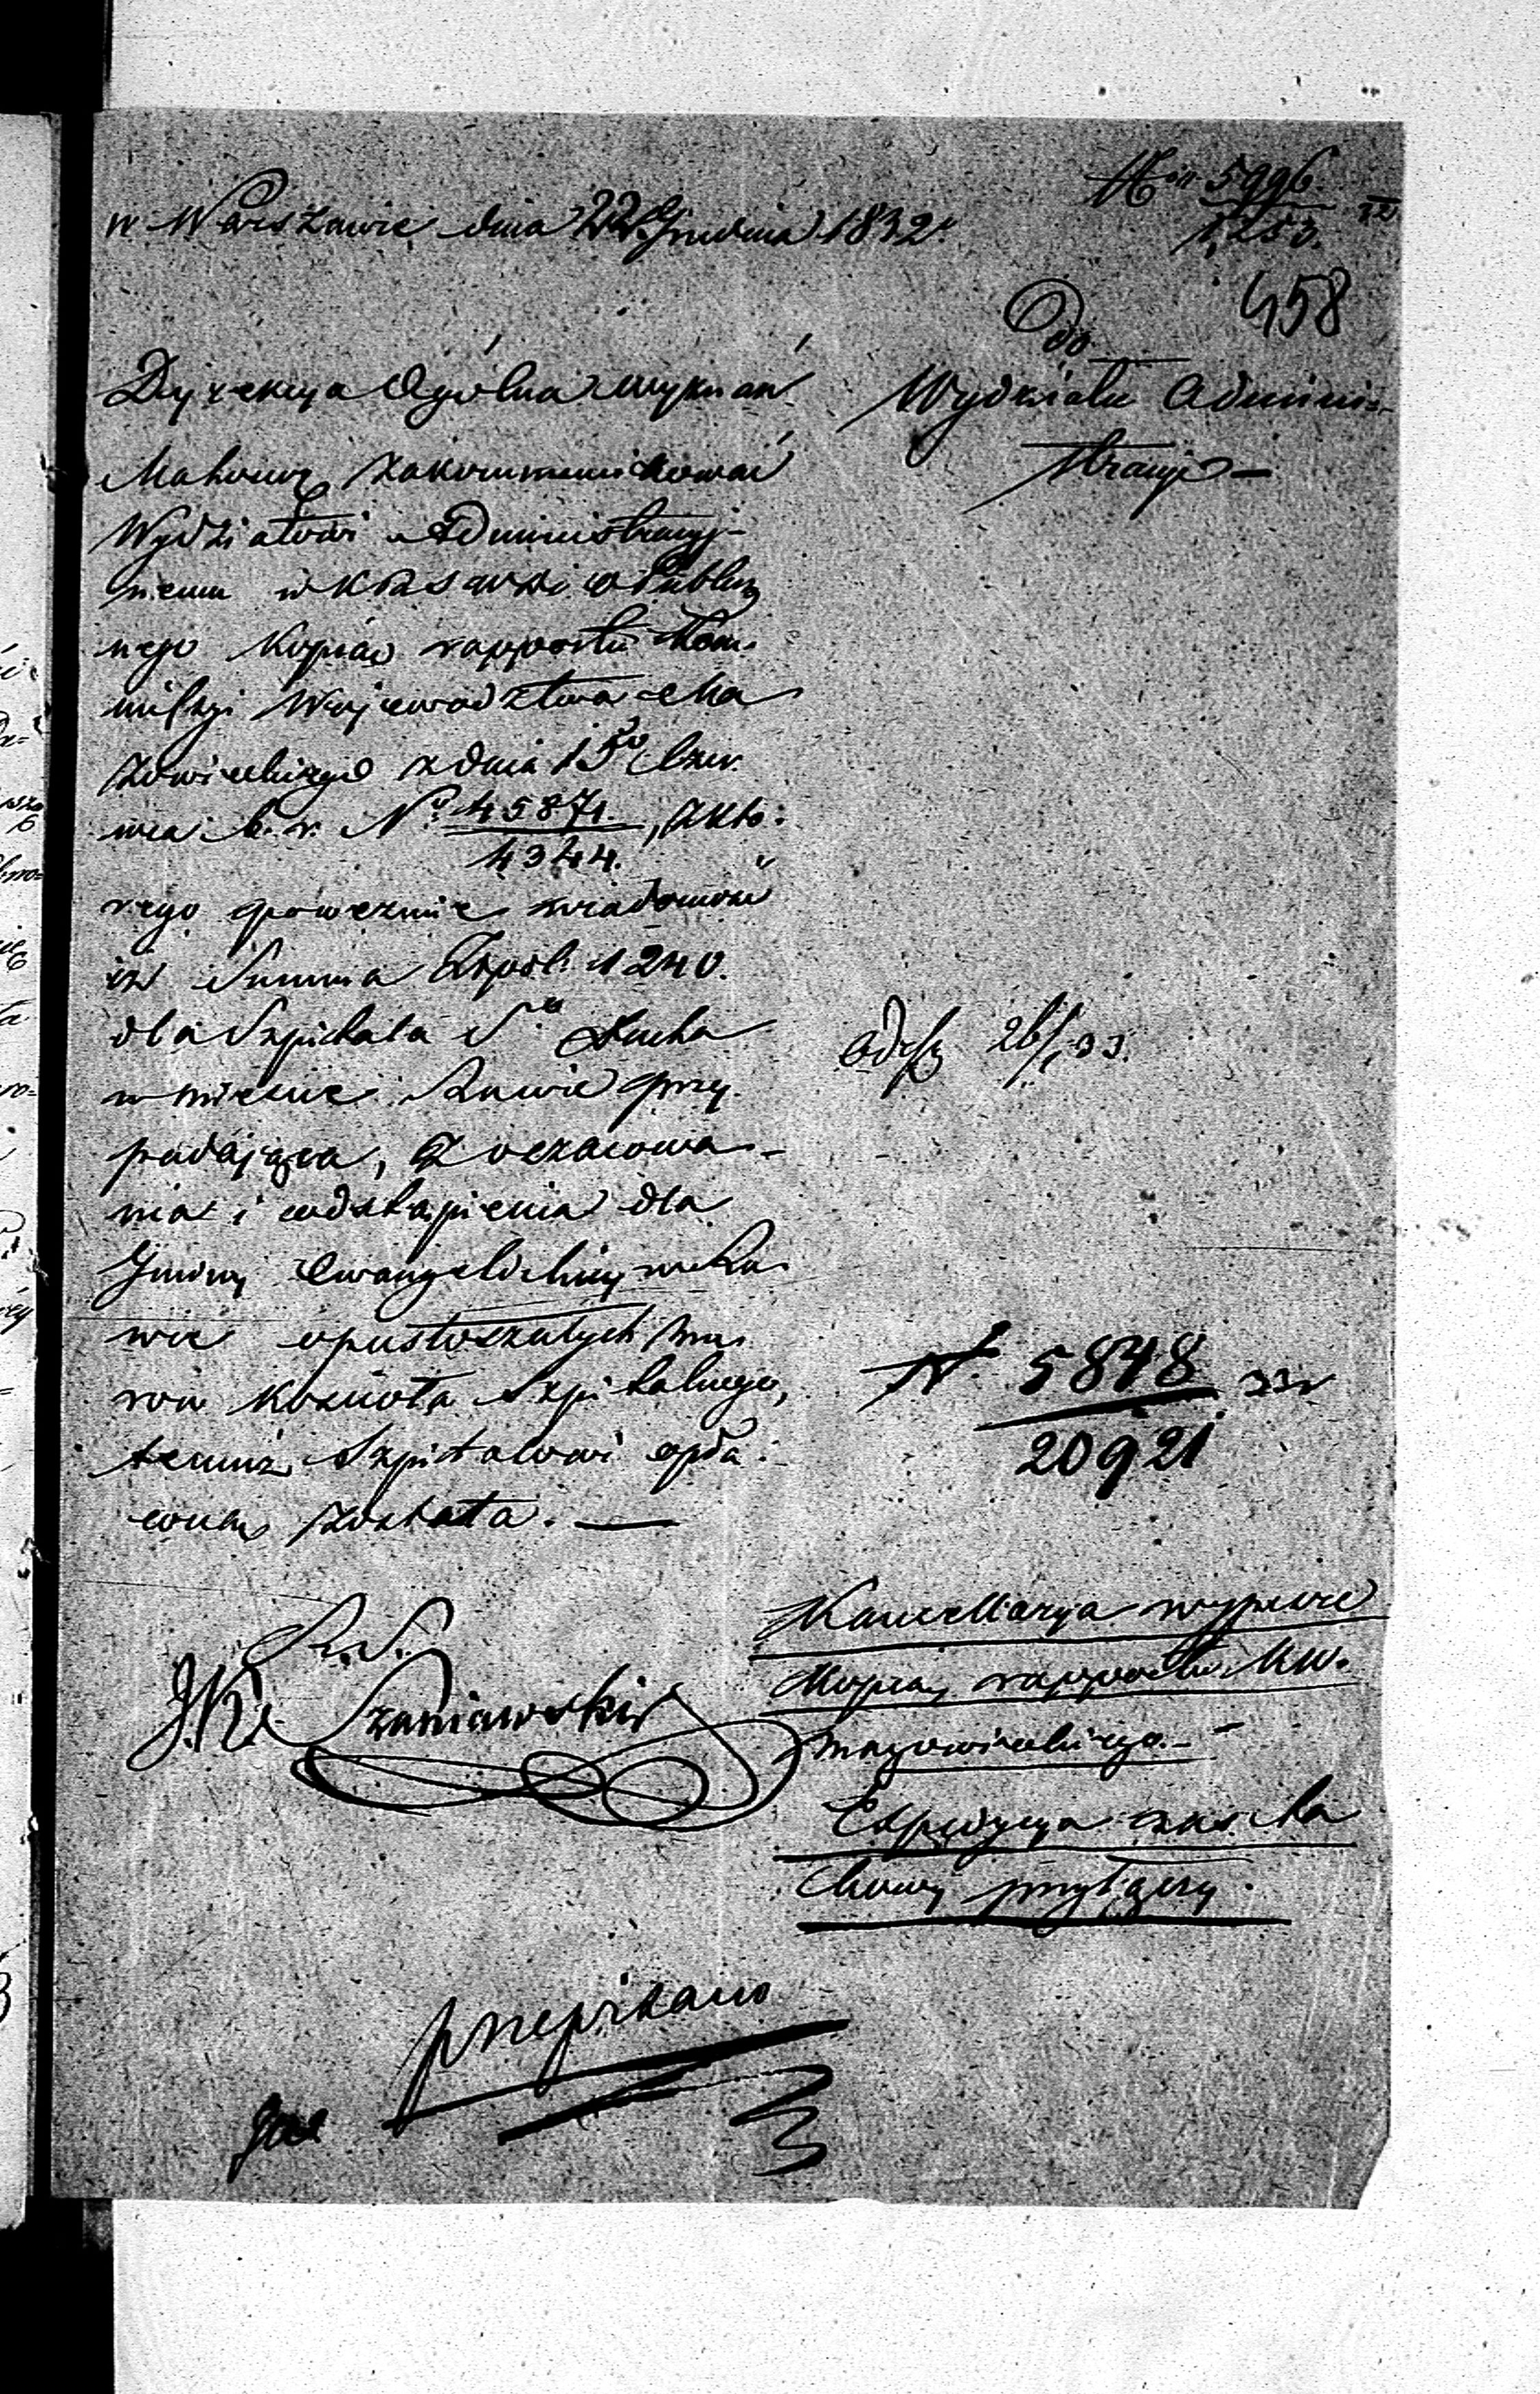 w Warszawie dnia 22 Grudnia 1832.
5996
1,253.
458
Do
Wydziału Adminis-
tracyi
Dyrekcya Ogólna Wyznań
zakommunikować
Wydziałowi Administracyj-
nemu w K R S W D i O Publicz
nego kopią rapportu Kom-
missyi Województwa Ma
zowieckiego z dnia 15go Czer
wca b. r. No 45871. , z któ:
4344.
rego poweźmie wiadomość
iż Summa Złpol: 1240.
dla Szpitala Sgo Ducha
w mieście Rawie przy
padająca, z oszacowa-
nia i odstąpienia dla
Gminy Ewangelickiey w Ra
wie opustoszałych mu
rów kościoła Szpitalnego,
temuż Szpitalowi opła
coną została. —
Odesz 26/1 33.
N. 5848 33r
20921
R. S.
J. K. Szaniawski
Kancellarya wypisze
kopią rapportu KW.
mazowieckiego. —
Expedycya
przyłączy.
przepisano